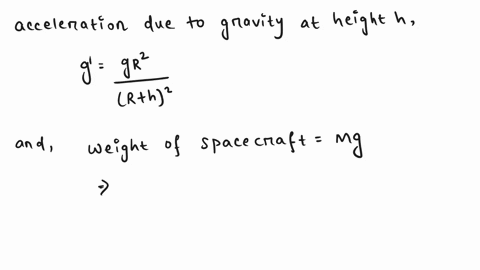 acceleration due to gravity at height h,
g' = gR²/(R+h)²
and, weight of spacecraft = Mg
⇒